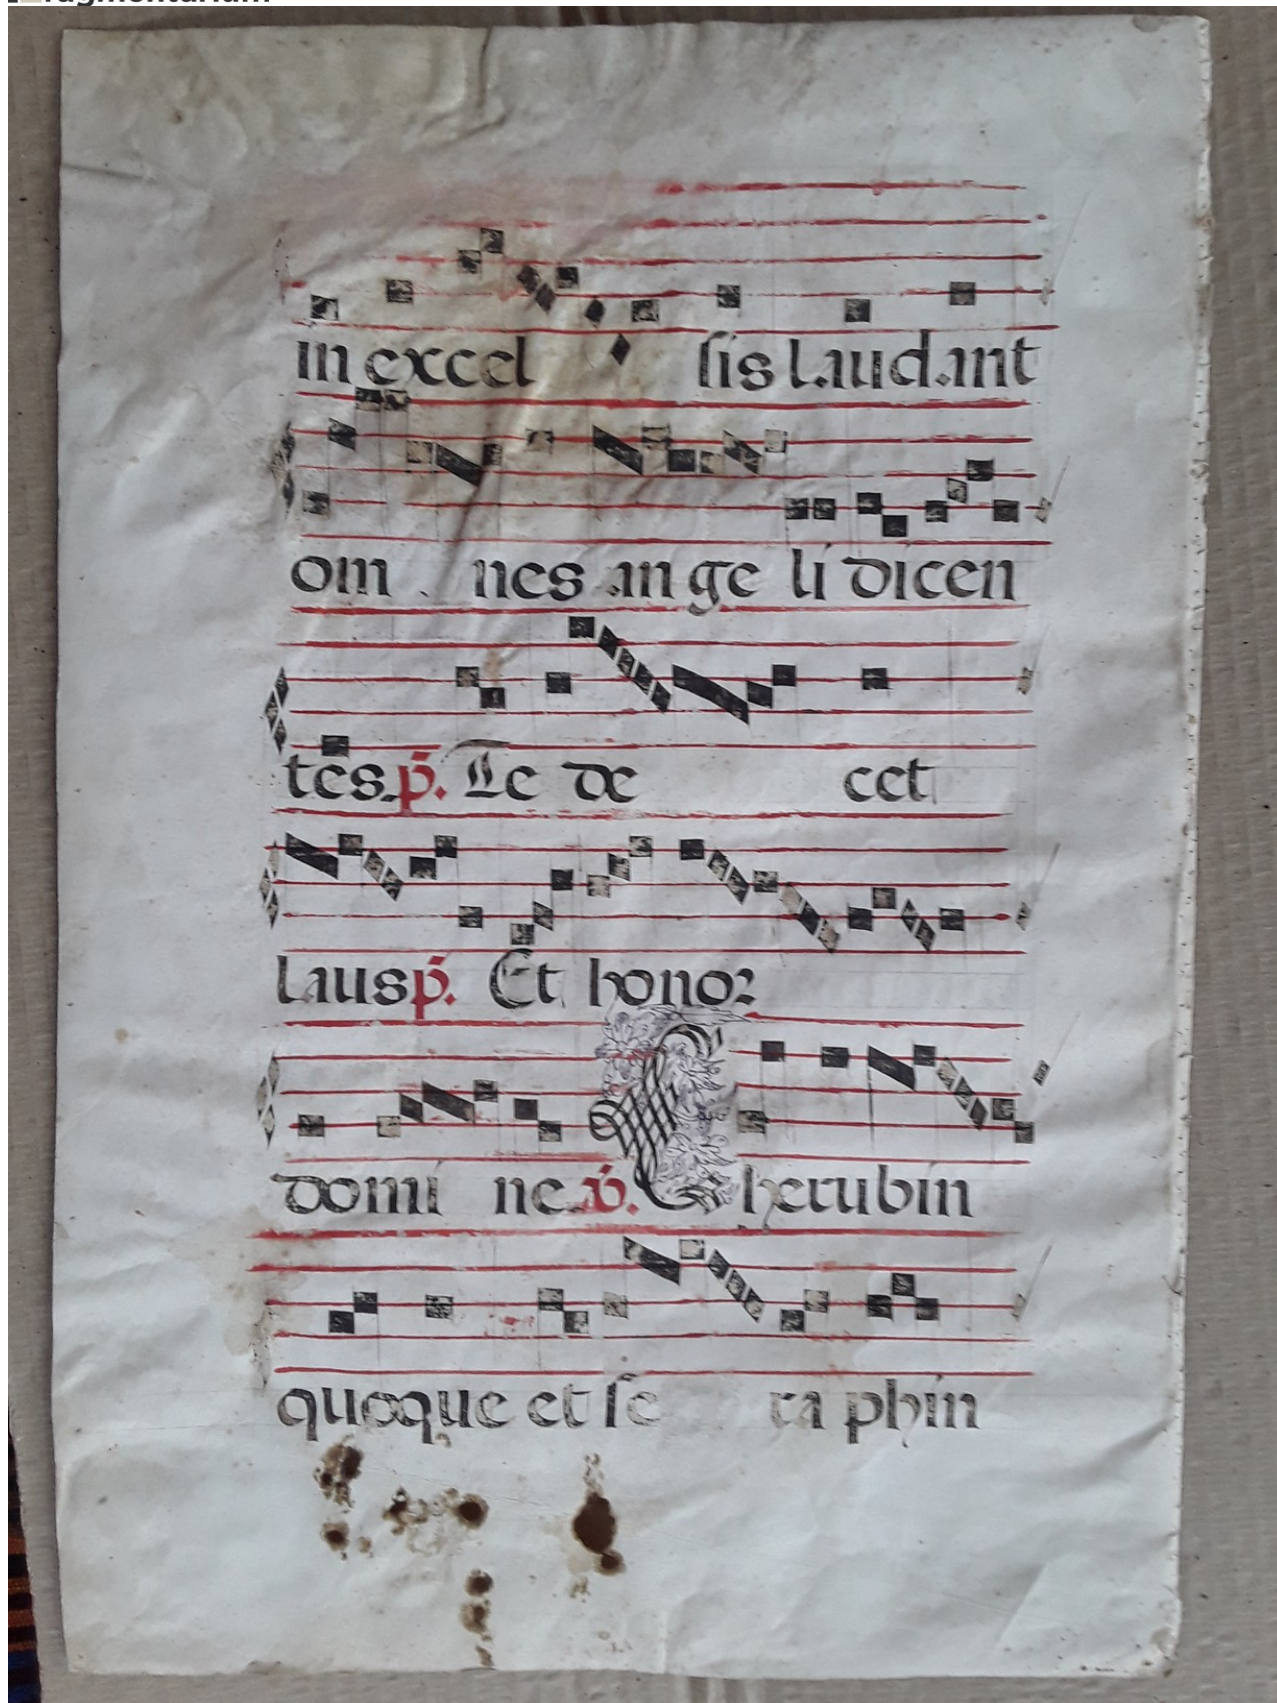 in excel sis laudant
om nes an ge li dicen
tes. p̄. Te de cet
laus p̄. Et honor
domi ne. v̄. Cherubin
quoque et se ra phin